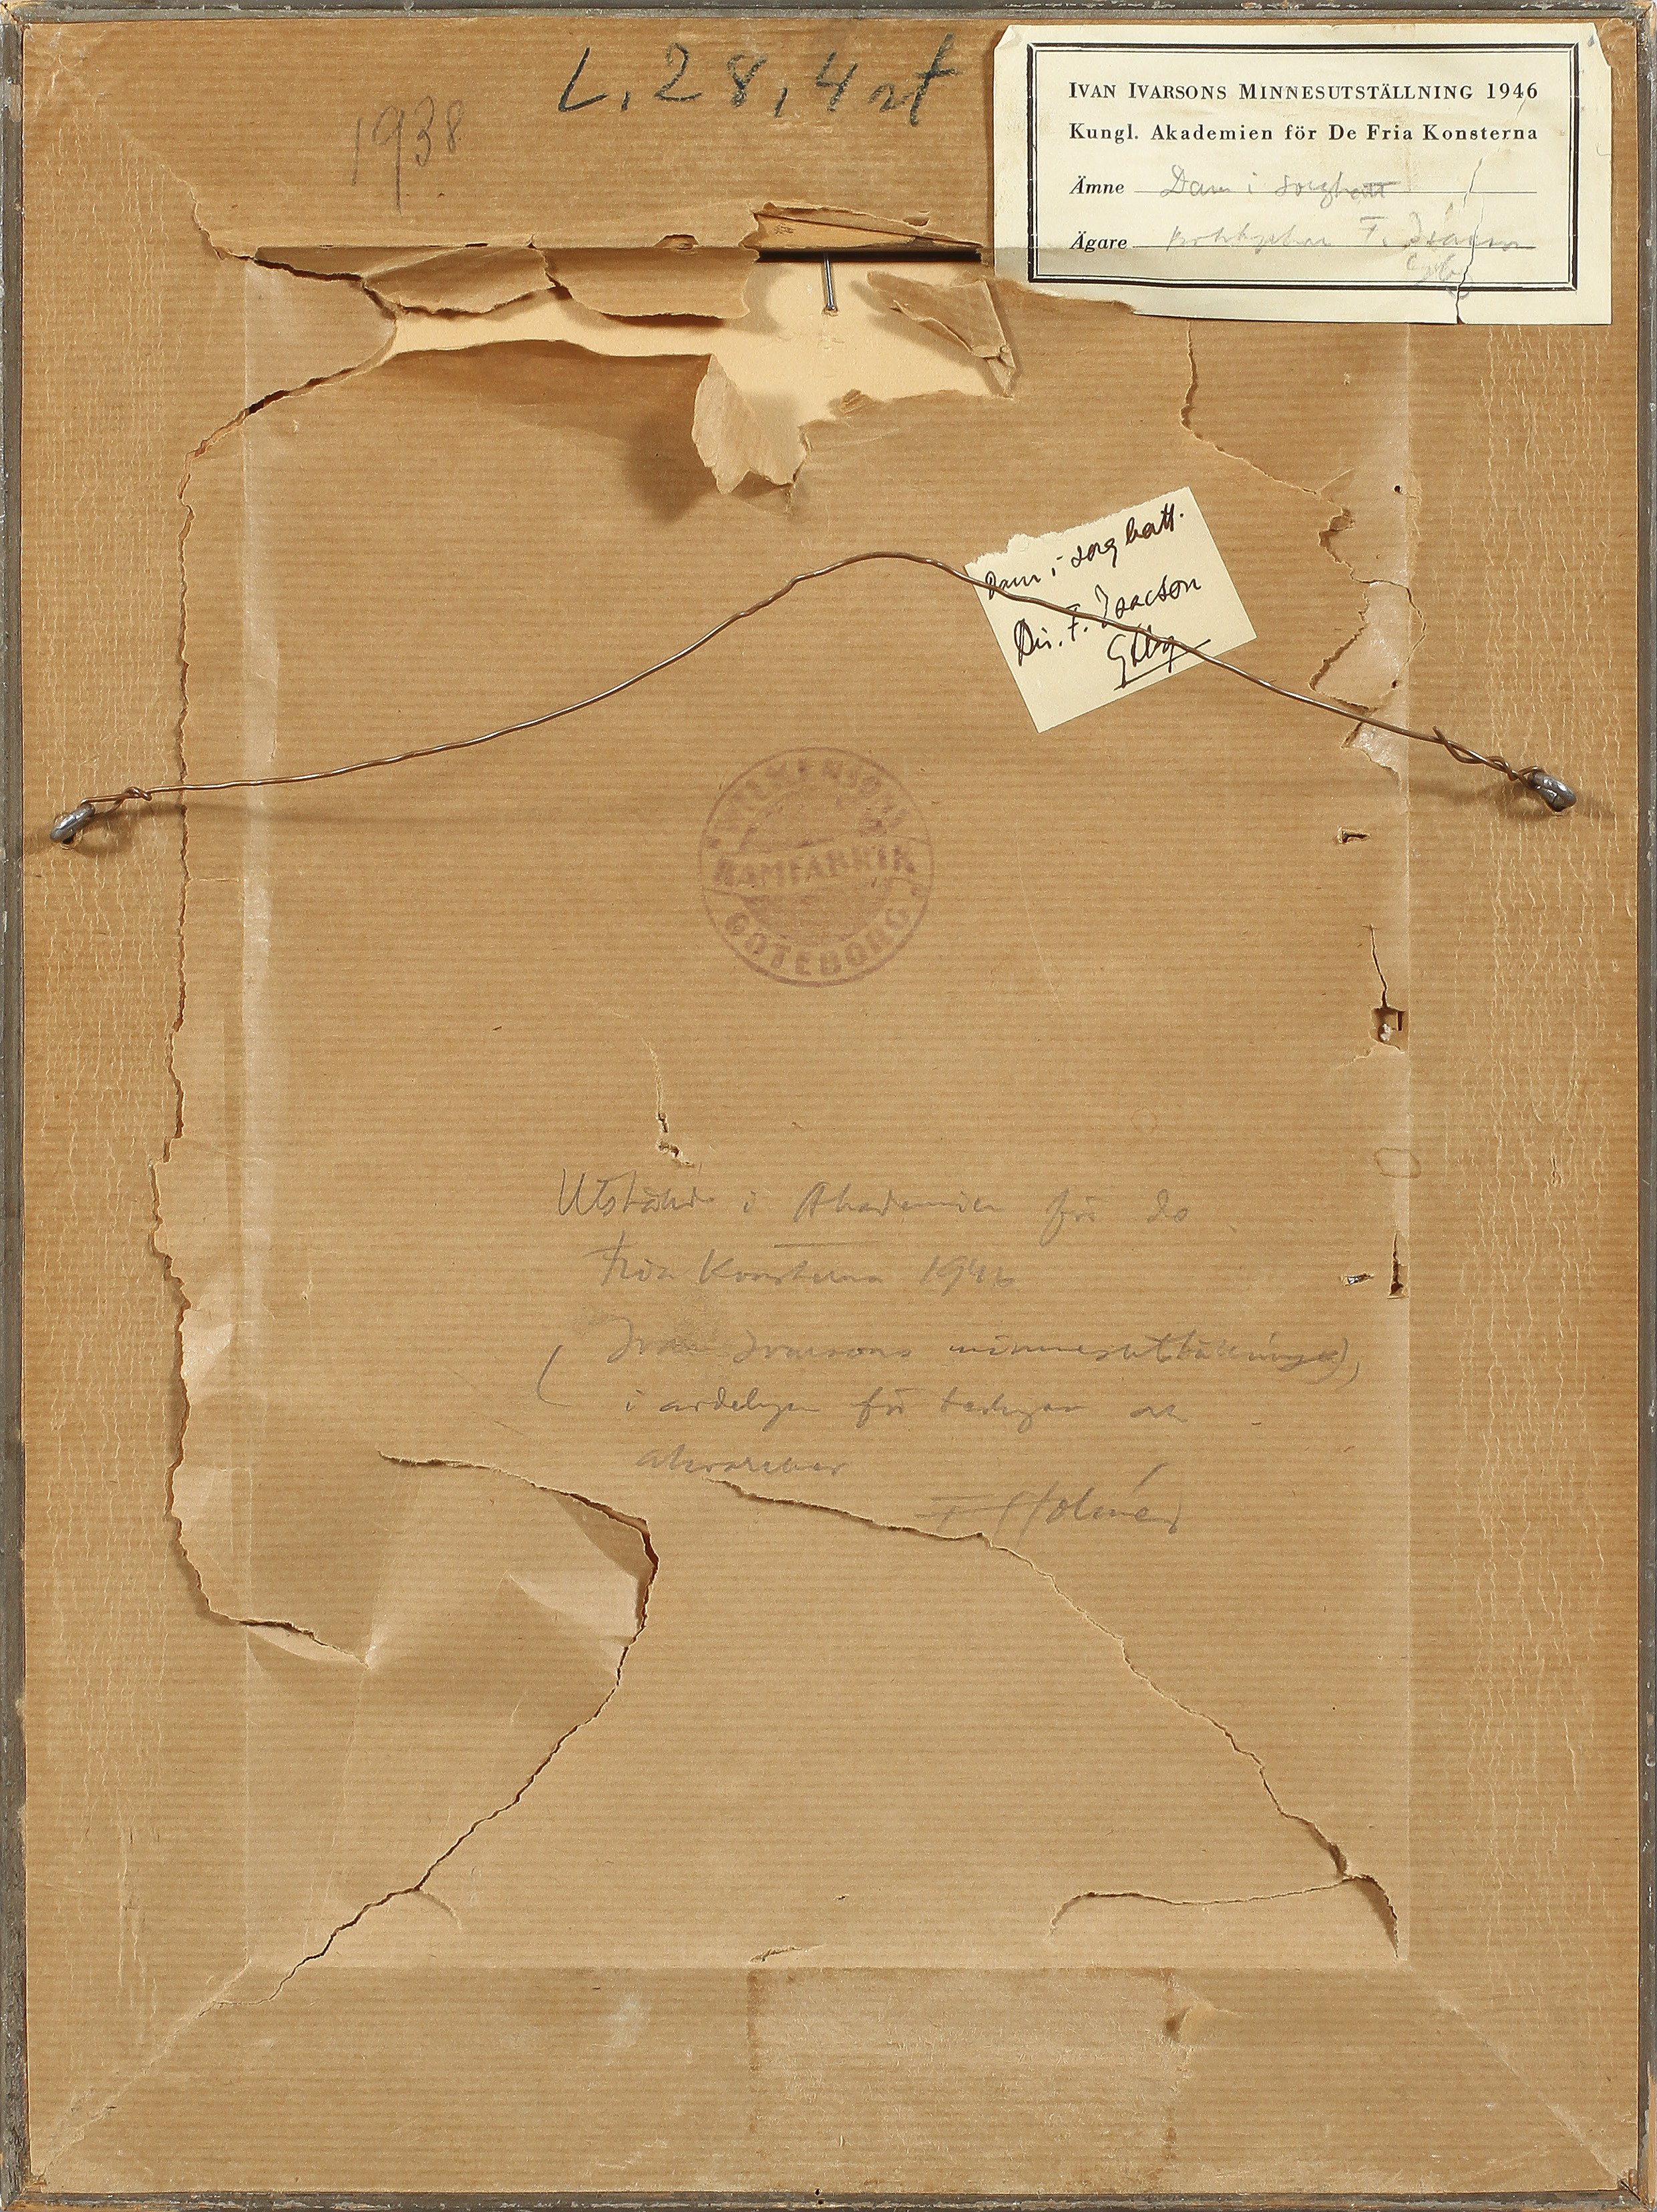 L. 28, 4 st
1938
IVAN IVARSONS MINNESUTSTÄLLNING 1946
Kungl. Akademien för De Fria Konsterna
Ämne Dam i sorghatt
Ägare F. Isacson
Gbg
Dam i sorghatt.
Dir. F. Isacson
Gbg
RAMFABRIK
GÖTEBORG
Utställd i Akademien för de
fria Konsterna 1946
(Ivan Ivarsons minnesutställning),
i avdelgen för teckngar och
akvareller
F Holmér